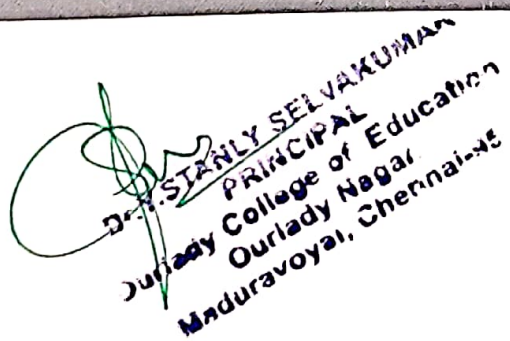 STANLY SELVAKUMAR
PRINCIPAL
Ourlady College of Education
Ourlady Nagar
Maduravoyal, Chennai-95